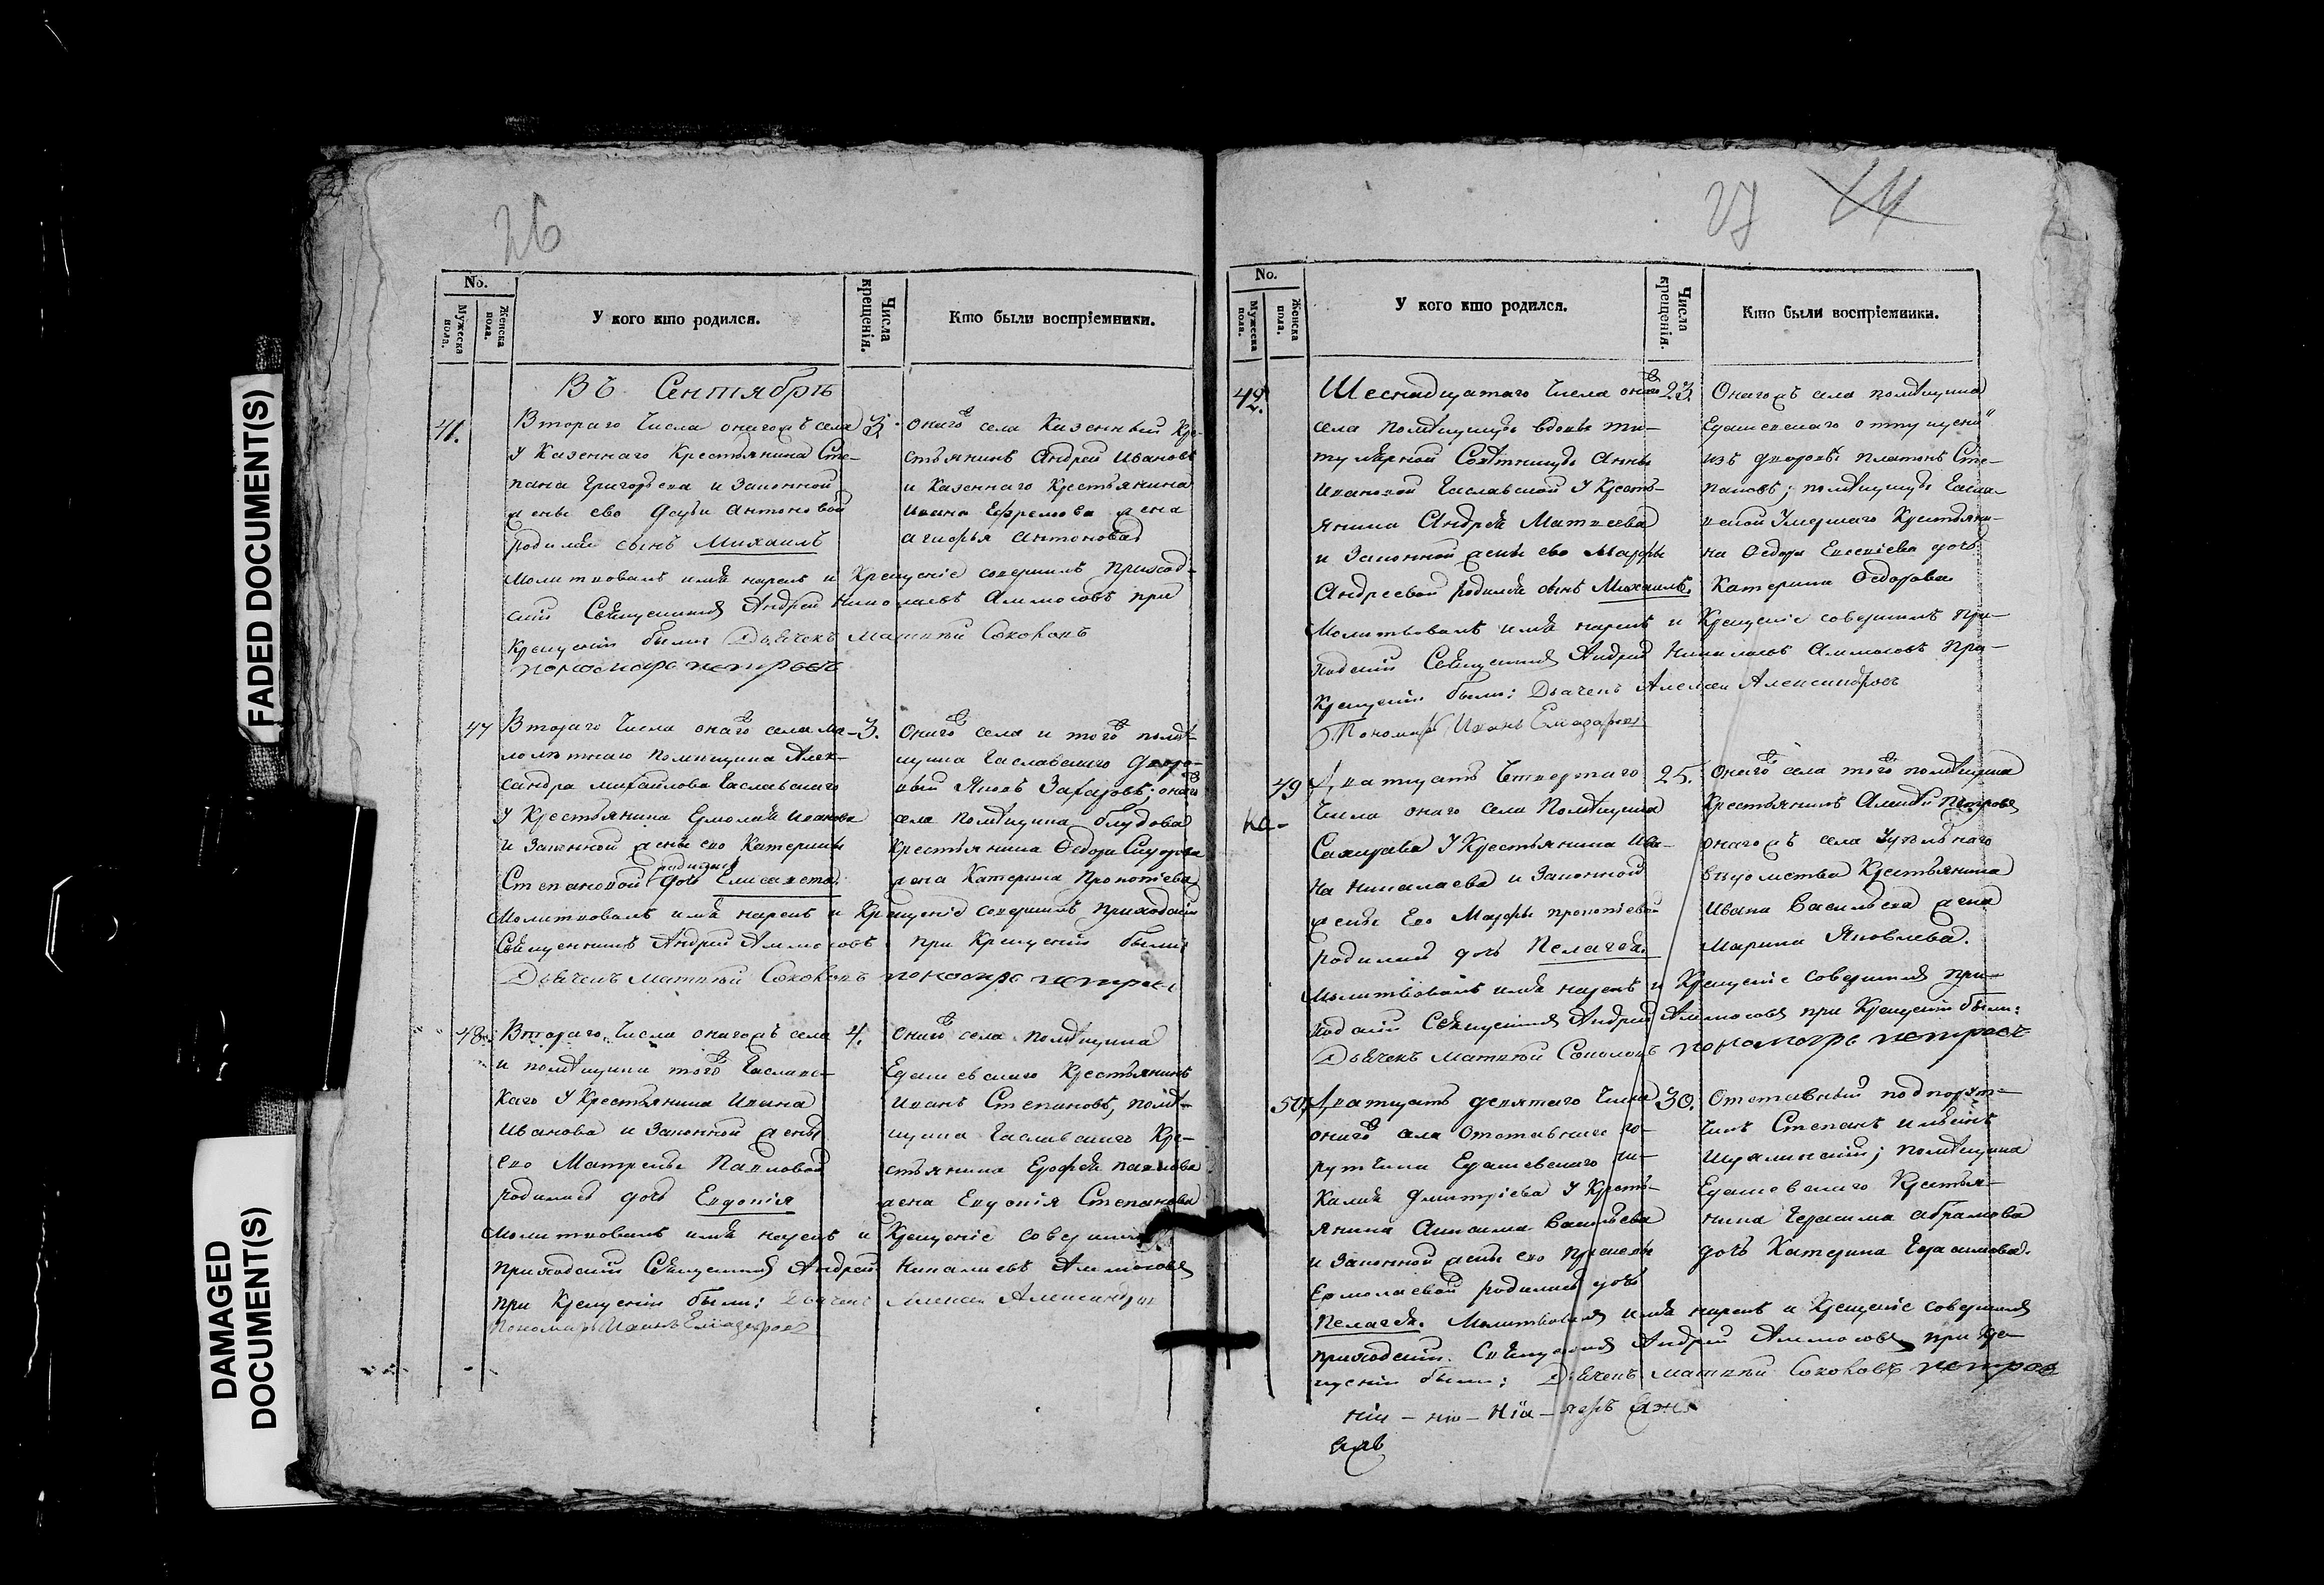 FADED DOCUMENT(S)
DAMAGED
DOCUMENT(S)
26
No.
Мужеска пола.
Женска пола.
У кого кто родился.
Числа крещенія.
Кто были воспріемники.
Въ Сентябрѣ
41.
Втораго Числа онагожъ села
у Казеннаго Крестьянина Сте-
пана Григорьева и Законной
жены ево Антоновой
родился сынъ Михаилъ
3.
онаго села Казенный Кре-
стьянинъ Андрей Ивановъ
и Казеннаго Крестьянина
Ивана Ефремова жена
Антонова
Молитвовалъ имя нарекъ и Крещеніе совершилъ приход-
скій Священникъ Андрей Николаевъ Аммосовъ при
Крещеніи были Дьячекъ Матвей Соколовъ
пономарь петровъ
47
Втораго Числа онаго села ма-
лолѣтнаго помещика Алек-
сандра Михайлова Чаславскаго
У Крестьянина Ермолая Иванова
и Законной жены ево Катерины
Степановой родилась дочь Елисавета.
3.
Онаго села и того помѣ-
щика Чаславскаго дворо-
вый Яковъ Захаровъ; онаго
села помѣщика Блудова
Крестьянина Федора Сидорова
жена Катерина Прокопіева
Молитвовалъ имя нарекъ и Крещеніе совершилъ приходскій
Священникъ Андрей Аммосовъ при Крещеніи были
Дьячекъ Матвей Соколовъ пономарь петровъ
48.
Втораго Числа онагожъ села
и помѣщика того Чаславс-
каго У Крестьянина Ивана
Иванова и Законной жены
ево Матрены Павловой
родилась дочь Евдокія
4.
Онаго села помѣщика
Едашевскаго Крестьянинъ
Иванъ Степановъ, помѣ-
щика Чаславскаго Кре-
стьянина Ерофея павлова
жена Евдокія Степанова
Молитвовалъ имя нарекъ и Крещеніе совершилъ
приходскій Священникъ Андрей Николаевъ Аммосовъ
при Крещеніи были: Дьячекъ Алексей Александровъ
Пономарь Иванъ Елиазаровъ
27
14
No.
Мужеска пола.
Женска пола.
У кого кто родился.
Числа крещенія.
Кто были воспріемники.
42.
Шеснадцатаго Числа онаго
села помѣщицы вдовы ти-
тулярной Совѣтницы Анны
Ивановой Чаславской У Кресть-
янина Андрея Матвеева
и Законной жены ево Марфы
Андреевой родился сынъ Михаилъ.
23.
Онагожъ села помѣщика
Едашевскаго отпущеный
изъ дворовыхъ Платонъ Сте-
пановъ; помѣщицы Часлав-
ской Умершаго Крестьяни-
на Федора Евсевіева дочь
Катерина Федорова
Молитвовалъ имя нарекъ и Крещеніе совершилъ при-
ходскій Священникъ Андрей Николаевъ Аммосовъ При
Крещеніи были: Дьячекъ Алексей Александровъ
Пономарь Иванъ Елиазаровъ
49
Дватцать Четвертаго
Числа онаго села Помѣщика
У Крестьянина Ива-
на Николаева и Законной
жены Ево Марфы прокопіевой
родилась дочь Пелагея.
25.
Онаго села того помѣщика
Крестьянинъ Алексѣй Петровъ
онагожъ села Удѣльнаго
вѣдомства Крестьянина
Ивана Васильева жена
Марина Яковлева.
Молитвовалъ имя нарекъ и Крещеніе совершилъ при-
ходскій Священникъ Андрей Аммосовъ при Крещеніи были:
Дьячекъ Матвей Соколовъ пономарь петровъ
50.
Дватцать девятаго Числа
онаго села Отставнаго по-
рутчика Едашевскаго Ни-
колая Дмитріева У Кресть-
янина Анисима Васильева
и Законной жены ево
Ермолаевой родилась дочь
30.
Отставный подпорут-
чикъ Степанъ
помѣщика
Едашевскаго Крестья-
нина Герасима абрамова
дочь Катерина Герасимова.
Пелагея. Молитвовалъ имя нарекъ и Крещеніе совершилъ
приходскій Священникъ Андрей Аммосовъ при Кре-
щеніи были: Дьячекъ Матвей Соколовъ петровъ